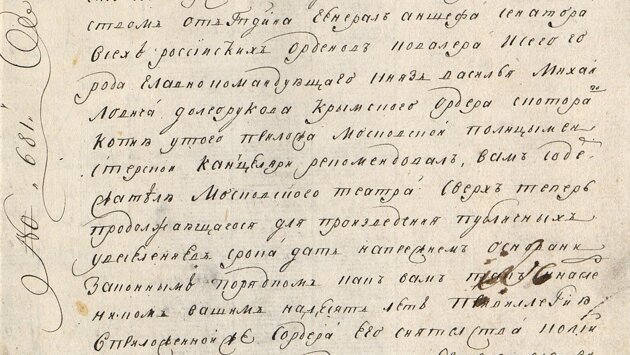 ством отгдина генералъ аншефа сенатора
всехъ российскихъ орденовъ ковалера исего го
рода главнокомандующаго князь василья михай
ловича долгорукова крымского ордера скотора
копия утого прилога московской полицымей
стерской канцеляри рекомендовалъ, вамъ соде
ржателѣ московского театра сверхъ теперь
продолжающагося для произведения публичныхъ
увеселениевъ срока дать напрежнемъ основани
законнымъ порядкомъ какъ вамъ такъ инасле
никомъ вашимъ на десять летъ привиллегию
сприложенной ордера его сиятельства копий
No. 681.